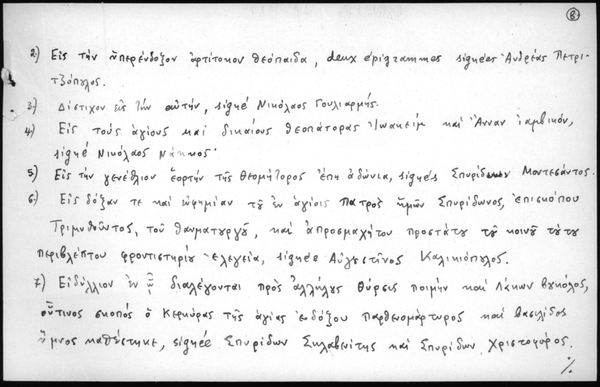 8
2) Εἰς τὴν ὑπερένδοξον ἀρτίτοκον θεόπαιδα, deux épigrammes signées Ἀνδρέας Πετρι-
τζόπυλος.
3) Δίστιχον εἰς τὴν αὐτήν, signé Νικόλαος Γουλιαρμῆς.
4) Εἰς τοὺς ἁγίους καὶ δικαίους θεοπάτορας Ἰωακεὶμ καὶ Ἄνναν ἰαμβικόν,
signé Νικόλαος Νάκκος.
5) Εἰς τὴν γενέθλιον ἑορτὴν τῆς θεομήτορος ἔπη ἀδώνια, signés Σπυρίδων Μοντεσάντος.
6) Εἰς δόξαν τε καὶ εὐφημίαν τȣ͂ ἐν ἁγίοις Πατρὸς ἡμῶν Σπυρίδωνος, ἐπισκόπου
Τριμυθοῦντος, τοῦ θαυματουργȣ͂, καὶ ἀπροσμαχήτου προστάτȣ τȣ͂ κοινȣ͂ τȣ́τȣ
περιβλέπτου φροντιστηρίȣ ἐλεγεία, signée Αὐγȣστῖνος Καλικιόπυλος.
7) Εἰδύλλιον ἐν ᾧ διαλέγονται πρὸς ἀλλήλȣς Θύρσις ποιμὴν καὶ Λάκων βȣκόλος,
οὗτινος σκοπὸς ὁ Κερκύρας τῆς ἁγίας ἐνδόξου Παρθενομάρτυρος καὶ βασιλίδος
ὕμνος καθέστηκε, signée Σπυρίδων Σκλαβενίτης καὶ Σπυρίδων Χριστοφόρος.
./.